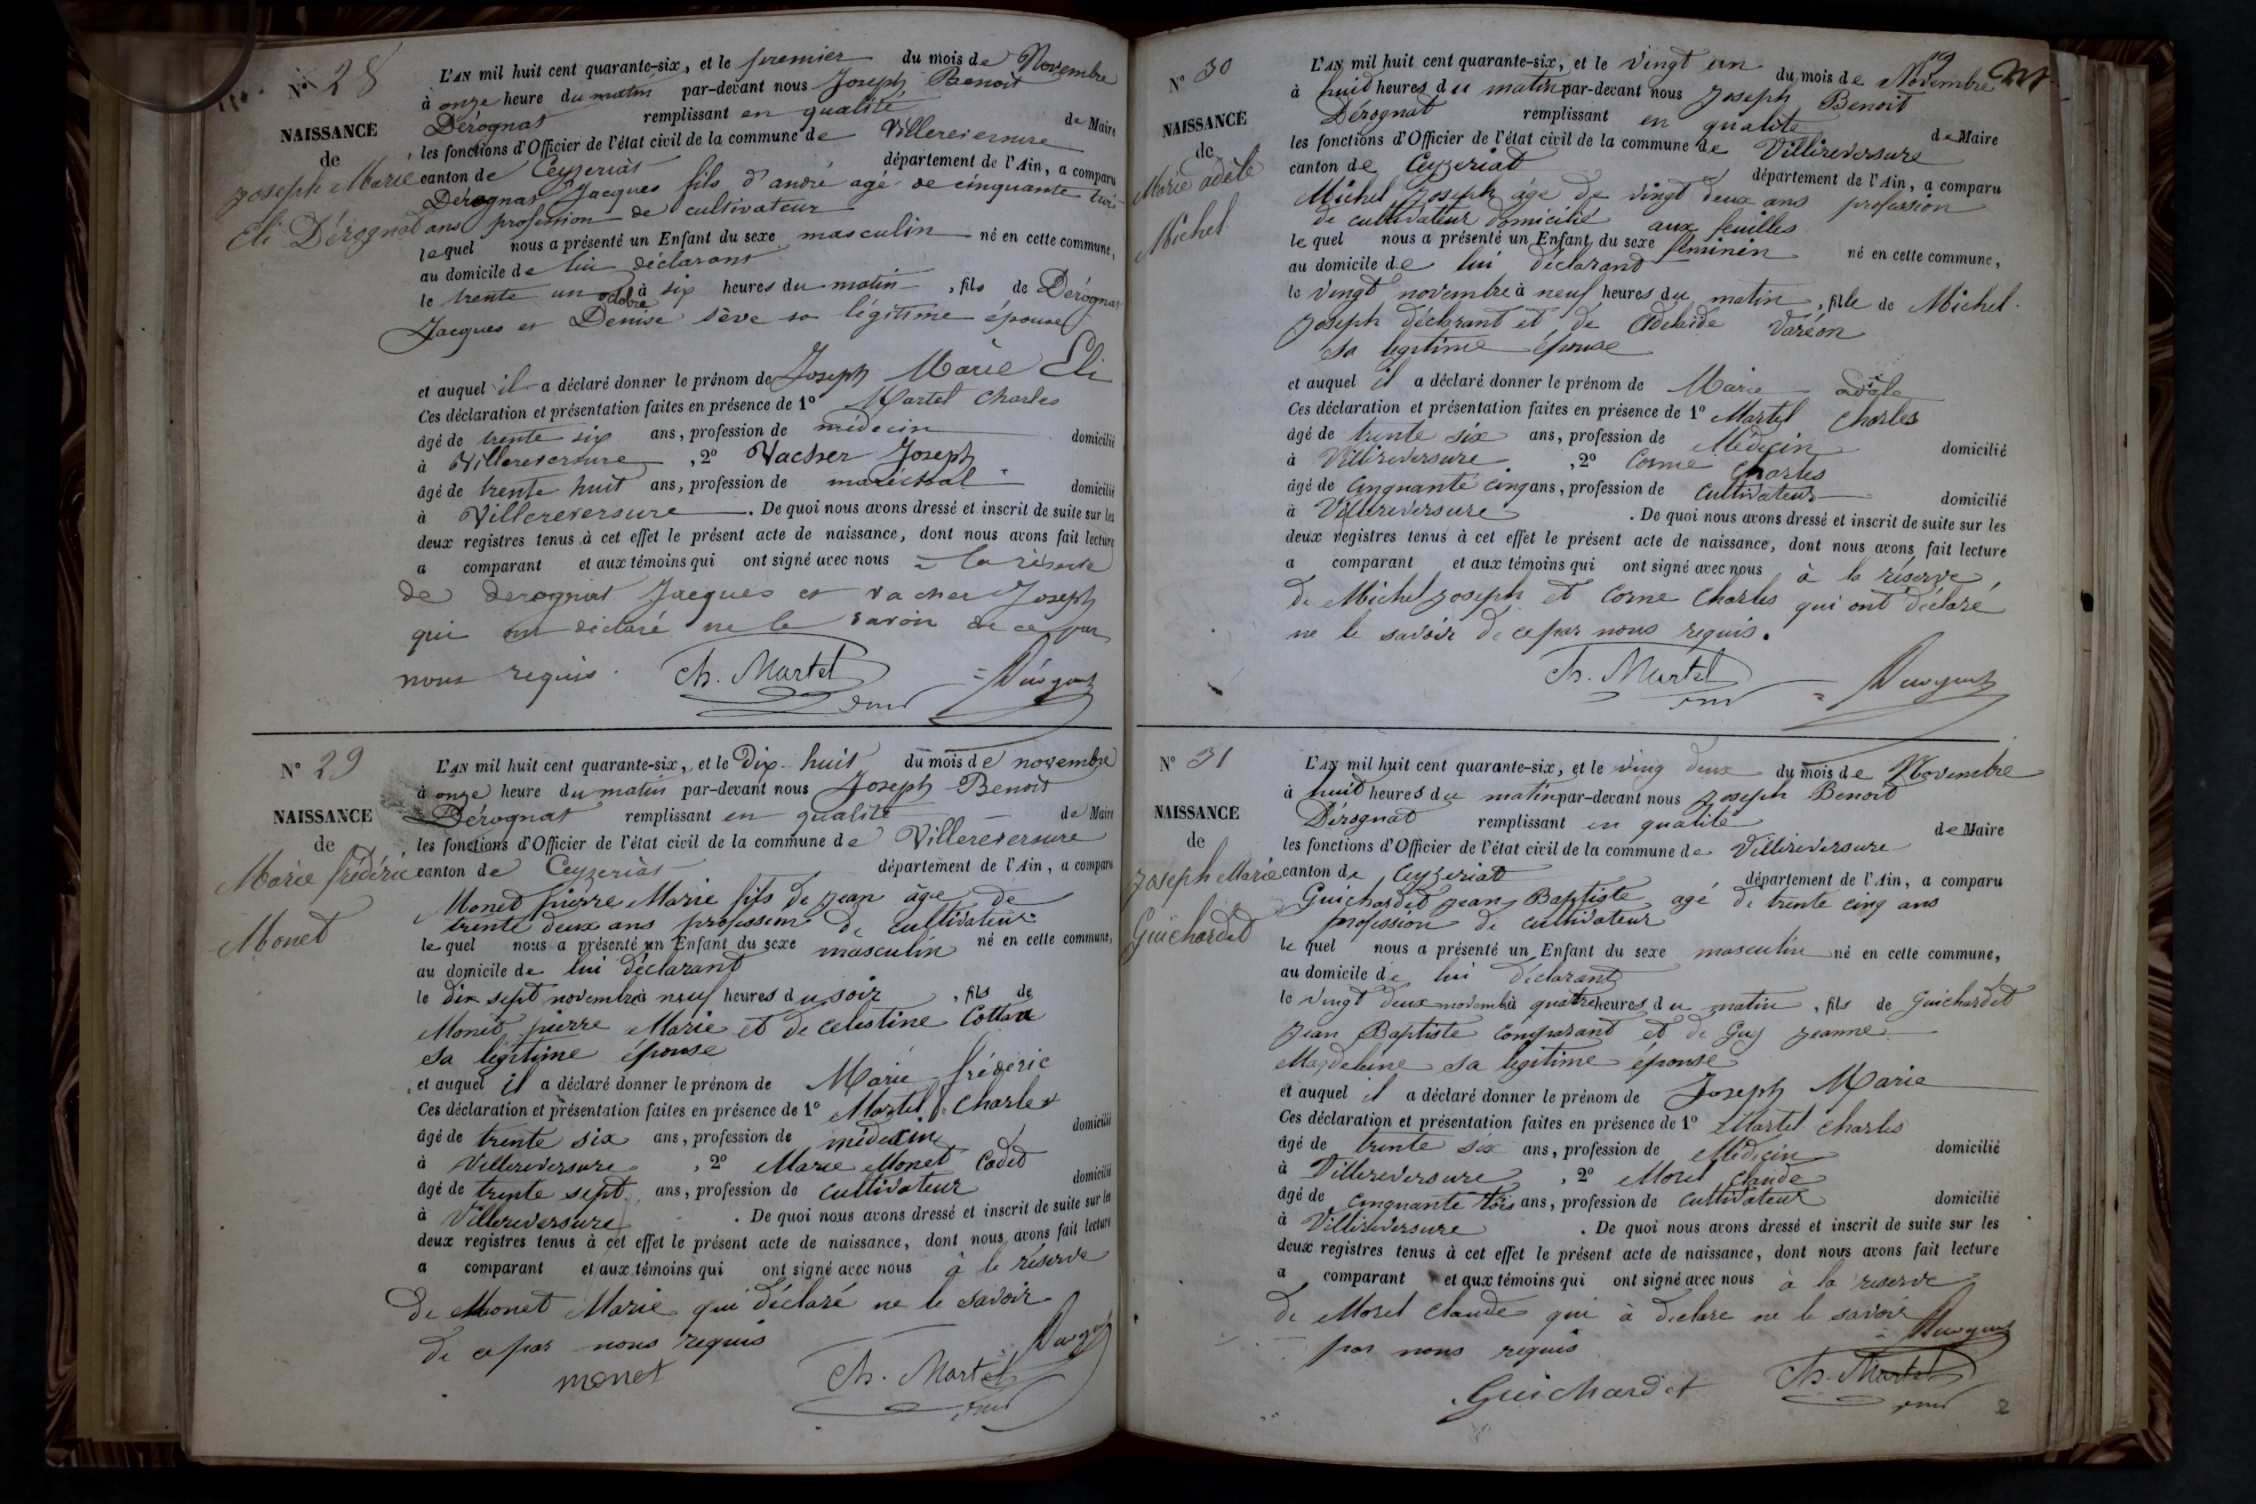 N° 28
NAISSANCE
de
Joseph Marie
Eli Dérognat
L'AN mil huit cent quarante-six, et le premier du mois de Novembre
à onze heure du matin par-devant nous Joseph Benoit
Dérognat remplissant en qualité de Maire
les fonctions d'Officier de l'état civil de la commune de Villereversure
canton de Ceyzeriat département de l'Ain, a comparu
Dérognat Jacques fils d'andré agé de cinquante trois
ans profession de cultivateur
lequel nous a présenté un Enfant du sexe masculin né en cette commune,
au domicile de lui déclarant
le trente un octobre à six heures du matin, fils de Dérognat
Jacques et Denise Sève sa légitime épouse
et auquel il a déclaré donner le prénom de Joseph Marie Eli
Ces déclaration et présentation faites en présence de 1° Martel Charles
âgé de trente six ans, profession de médecin domicilié
à Villereversure, 2° Vacher Joseph
âgé de trente huit ans, profession de maréchal domicilié
à Villereversure. De quoi nous avons dressé et inscrit de suite sur les
deux registres tenus à cet effet le présent acte de naissance, dont nous avons fait lecture
a comparant et aux témoins qui ont signé avec nous a la réserve
de derognat Jacques et vacher Joseph
qui ont déclaré ne le savoir de ce par
nous requis.
Ch. Martel
Dérognat
N° 29
NAISSANCE
de
Marie frédéric
Monet
L'AN mil huit cent quarante-six, et le Dix huit du mois de novembre
à onze heure du matin par-devant nous Joseph Benoit
Dérognat remplissant en qualité de Maire
les fonctions d'Officier de l'état civil de la commune de Villereversure
canton de Ceyzeriat département de l'Ain, a comparu
Monet pierre Marie fils de jean âgé de
trente deux ans profession de cultivateur
lequel nous a présenté un Enfant du sexe masculin né en cette commune,
au domicile de lui déclarant
le dix sept novembre à neuf heures du soir, fils de
Monet pierre Marie et de celestine
sa légitime épouse
et auquel il a déclaré donner le prénom de Marie frédéric
Ces déclaration et présentation faites en présence de 1° Martel Charles
âgé de trente six ans, profession de médecin domicilié
à Villereversure, 2° Marie Monet Cadet
âgé de trente sept ans, profession de cultivateur domicilié
à Villereversure. De quoi nous avons dressé et inscrit de suite sur les
deux registres tenus à cet effet le présent acte de naissance, dont nous avons fait lecture
a comparant et aux témoins qui ont signé avec nous à la réserve
de Monet Marie qui déclaré ne le savoir
de ce par nous requis
monet
Ch. Martel
Dérognat
19
N° 30
NAISSANCE
de
Marie adèle
Michel
L'AN mil huit cent quarante-six, et le vingt un du mois de Novembre
à huit heures du matin par-devant nous Joseph Benoit
Dérognat remplissant en qualité de Maire
les fonctions d'Officier de l'état civil de la commune de Villereversure
canton de Ceyzeriat département de l'Ain, a comparu
Michel Joseph âgé de vingt deux ans profession
de cultivateur domicilié aux feuilles
lequel nous a présenté un Enfant du sexe féminin né en cette commune,
au domicile de lui déclarant
le vingt novembre à neuf heures du matin, fille de Michel
Joseph déclarant et de Adelaïde Varéon
sa légitime épouse
et auquel il a déclaré donner le prénom de Marie adèle
Ces déclaration et présentation faites en présence de 1° Martel Charles
âgé de trente six ans, profession de Médecin domicilié
à Villereversure, 2° Corne Charles
âgé de cinquante cinq ans, profession de cultivateur domicilié
à Villereversure. De quoi nous avons dressé et inscrit de suite sur les
deux registres tenus à cet effet le présent acte de naissance, dont nous avons fait lecture
a comparant et aux témoins qui ont signé avec nous à la réserve
de Michel Joseph et Corne Charles qui ont déclaré
ne le savoir de ce par nous requis.
Ch. Martel
Dérognat
N° 31
NAISSANCE
de
Joseph Marie
Guichardet
L'AN mil huit cent quarante-six, et le ving deux du mois de Novembre
à huit heures du matin par-devant nous Joseph Benoit
Dérognat remplissant en qualité de Maire
les fonctions d'Officier de l'état civil de la commune de Villereversure
canton de Ceyzeriat département de l'Ain, a comparu
Guichardet Jean Baptiste agé de trente cinq ans
profession de cultivateur
lequel nous a présenté un Enfant du sexe masculin né en cette commune,
au domicile de lui déclarant
le vingt deux novembre à quatre heures du matin, fils de Guichardet
Jean Baptiste comparant et de Guy Jeanne
Magdeleine sa légitime épouse
et auquel il a déclaré donner le prénom de Joseph Marie
Ces déclaration et présentation faites en présence de 1° Martel Charles
âgé de trente six ans, profession de Médecin domicilié
à Villereversure, 2° Morel Claude
âgé de cinquante trois ans, profession de cultivateur domicilié
à Villereversure. De quoi nous avons dressé et inscrit de suite sur les
deux registres tenus à cet effet le présent acte de naissance, dont nous avons fait lecture
a comparant et aux témoins qui ont signé avec nous à la réserve
de Morel Claude qui à déclaré ne le savoir
par nous requis
Dérognat
Guichardet
Ch. Martel